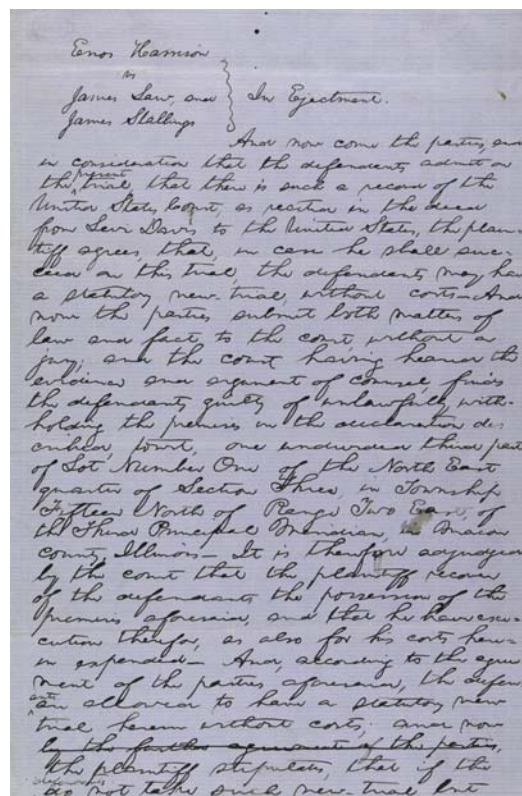 Enos Harrison
vs
James Law, and
James Stallings
In Ejectment.
And now come the parties, and
in consideration that the defendants admit on
the present trial, that there is such a record of the
United States Court, as recited in the deed
from Levi Davis to the United States, the plain-
tiff agrees, that, in case he shall suc-
ceed on this trial, the defendants may have
a statutory new-trial, without costs— And
now the parties submit both matters of
law and fact to the court, without a
jury; and the court having heard the
evidence and argument of counsel, finds
the defendants guilty of unlawfully with-
holding the premises in the declaration des
cribed, towit, one undivided third part
of Lot Number One of the North East
quarter of Section Three, in Township
Fifteen North of Range Two East, of
the Third Principal Meridian, in Macon
county, Illinois— It is therefore adjudged
by the court that the plaintiff recover
of the defendants the possession of the
premises aforesaid, and that he have exe-
cution therefor, as also for his costs here-
in expended— And, according to the agree
ment of the parties aforesaid, the defen
ants are allowed to have a statutory new
trial herein without costs; and now
by the further agreement of the parties,
the plaintiff stipulates, that if the
defendants
do not take such new-trial but